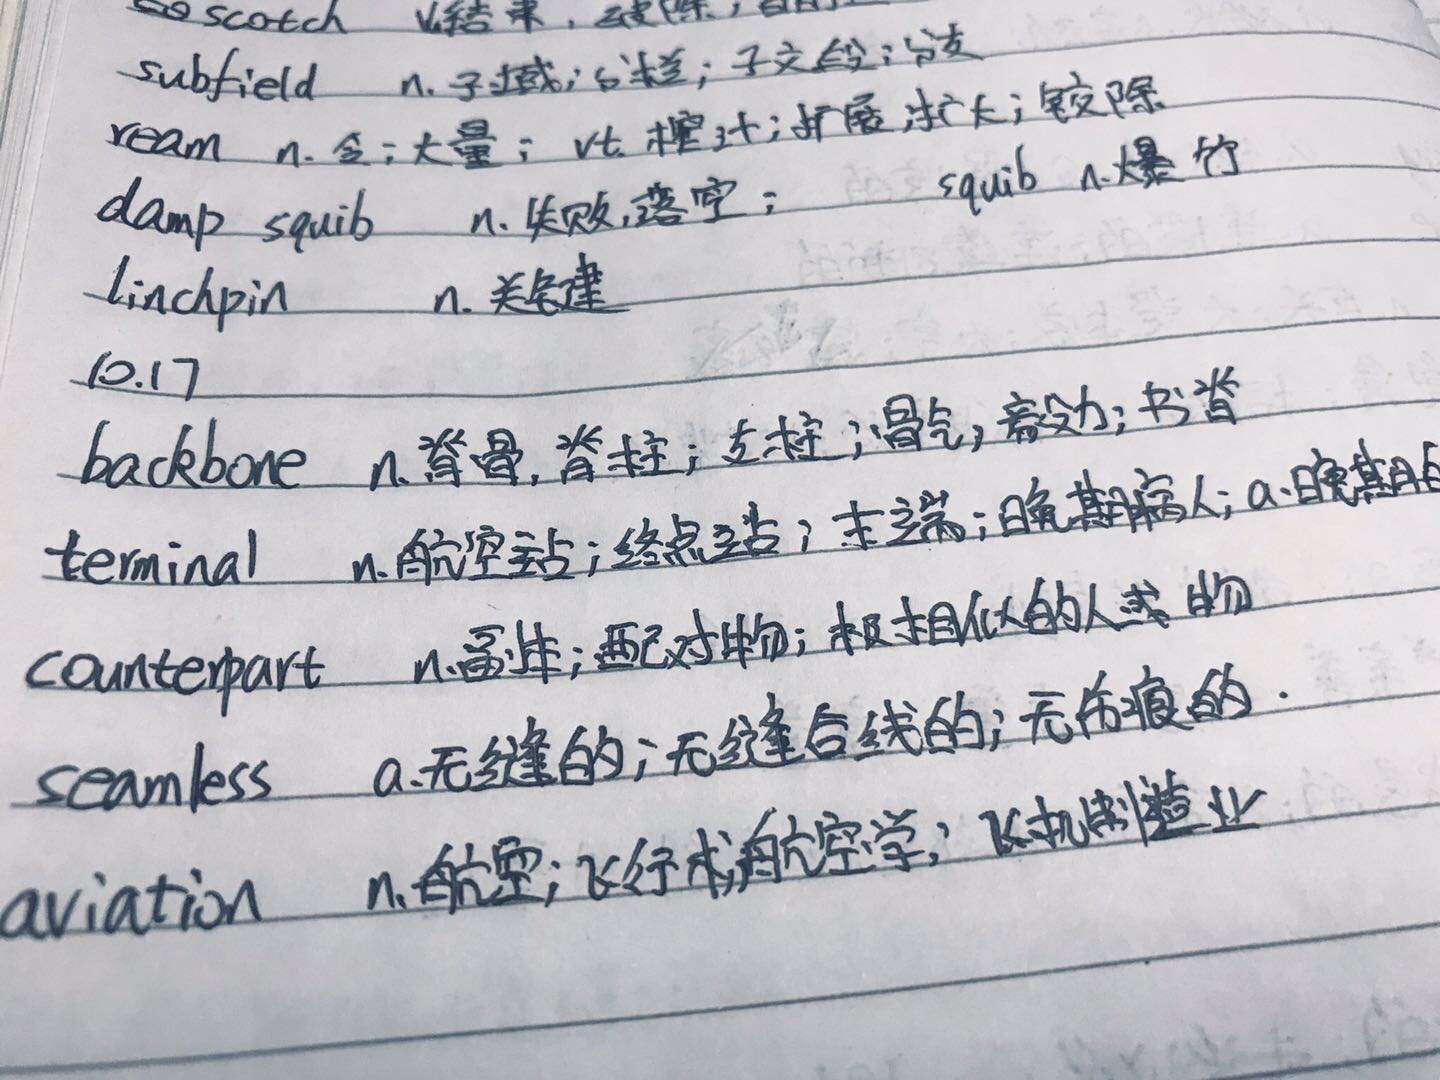 scotch v.结束,破除,
subfield n.子域;分栏;子文段;分支
ream n.令;大量; vt.榨汁;扩展,扩大;铰除
damp squib n.失败,落空; squib n.爆竹
linchpin n.关键
10.17
backbone n.脊骨,脊柱;支柱;骨气,毅力;书脊
terminal n.航空站;终点站;末端;晚期病人;a.晚期的
counterpart n.副本;配对物;极相似的人或物
seamless a.无缝的;无缝合线的;无伤痕的.
aviation n.航空;飞行术,航空学;飞机制造业